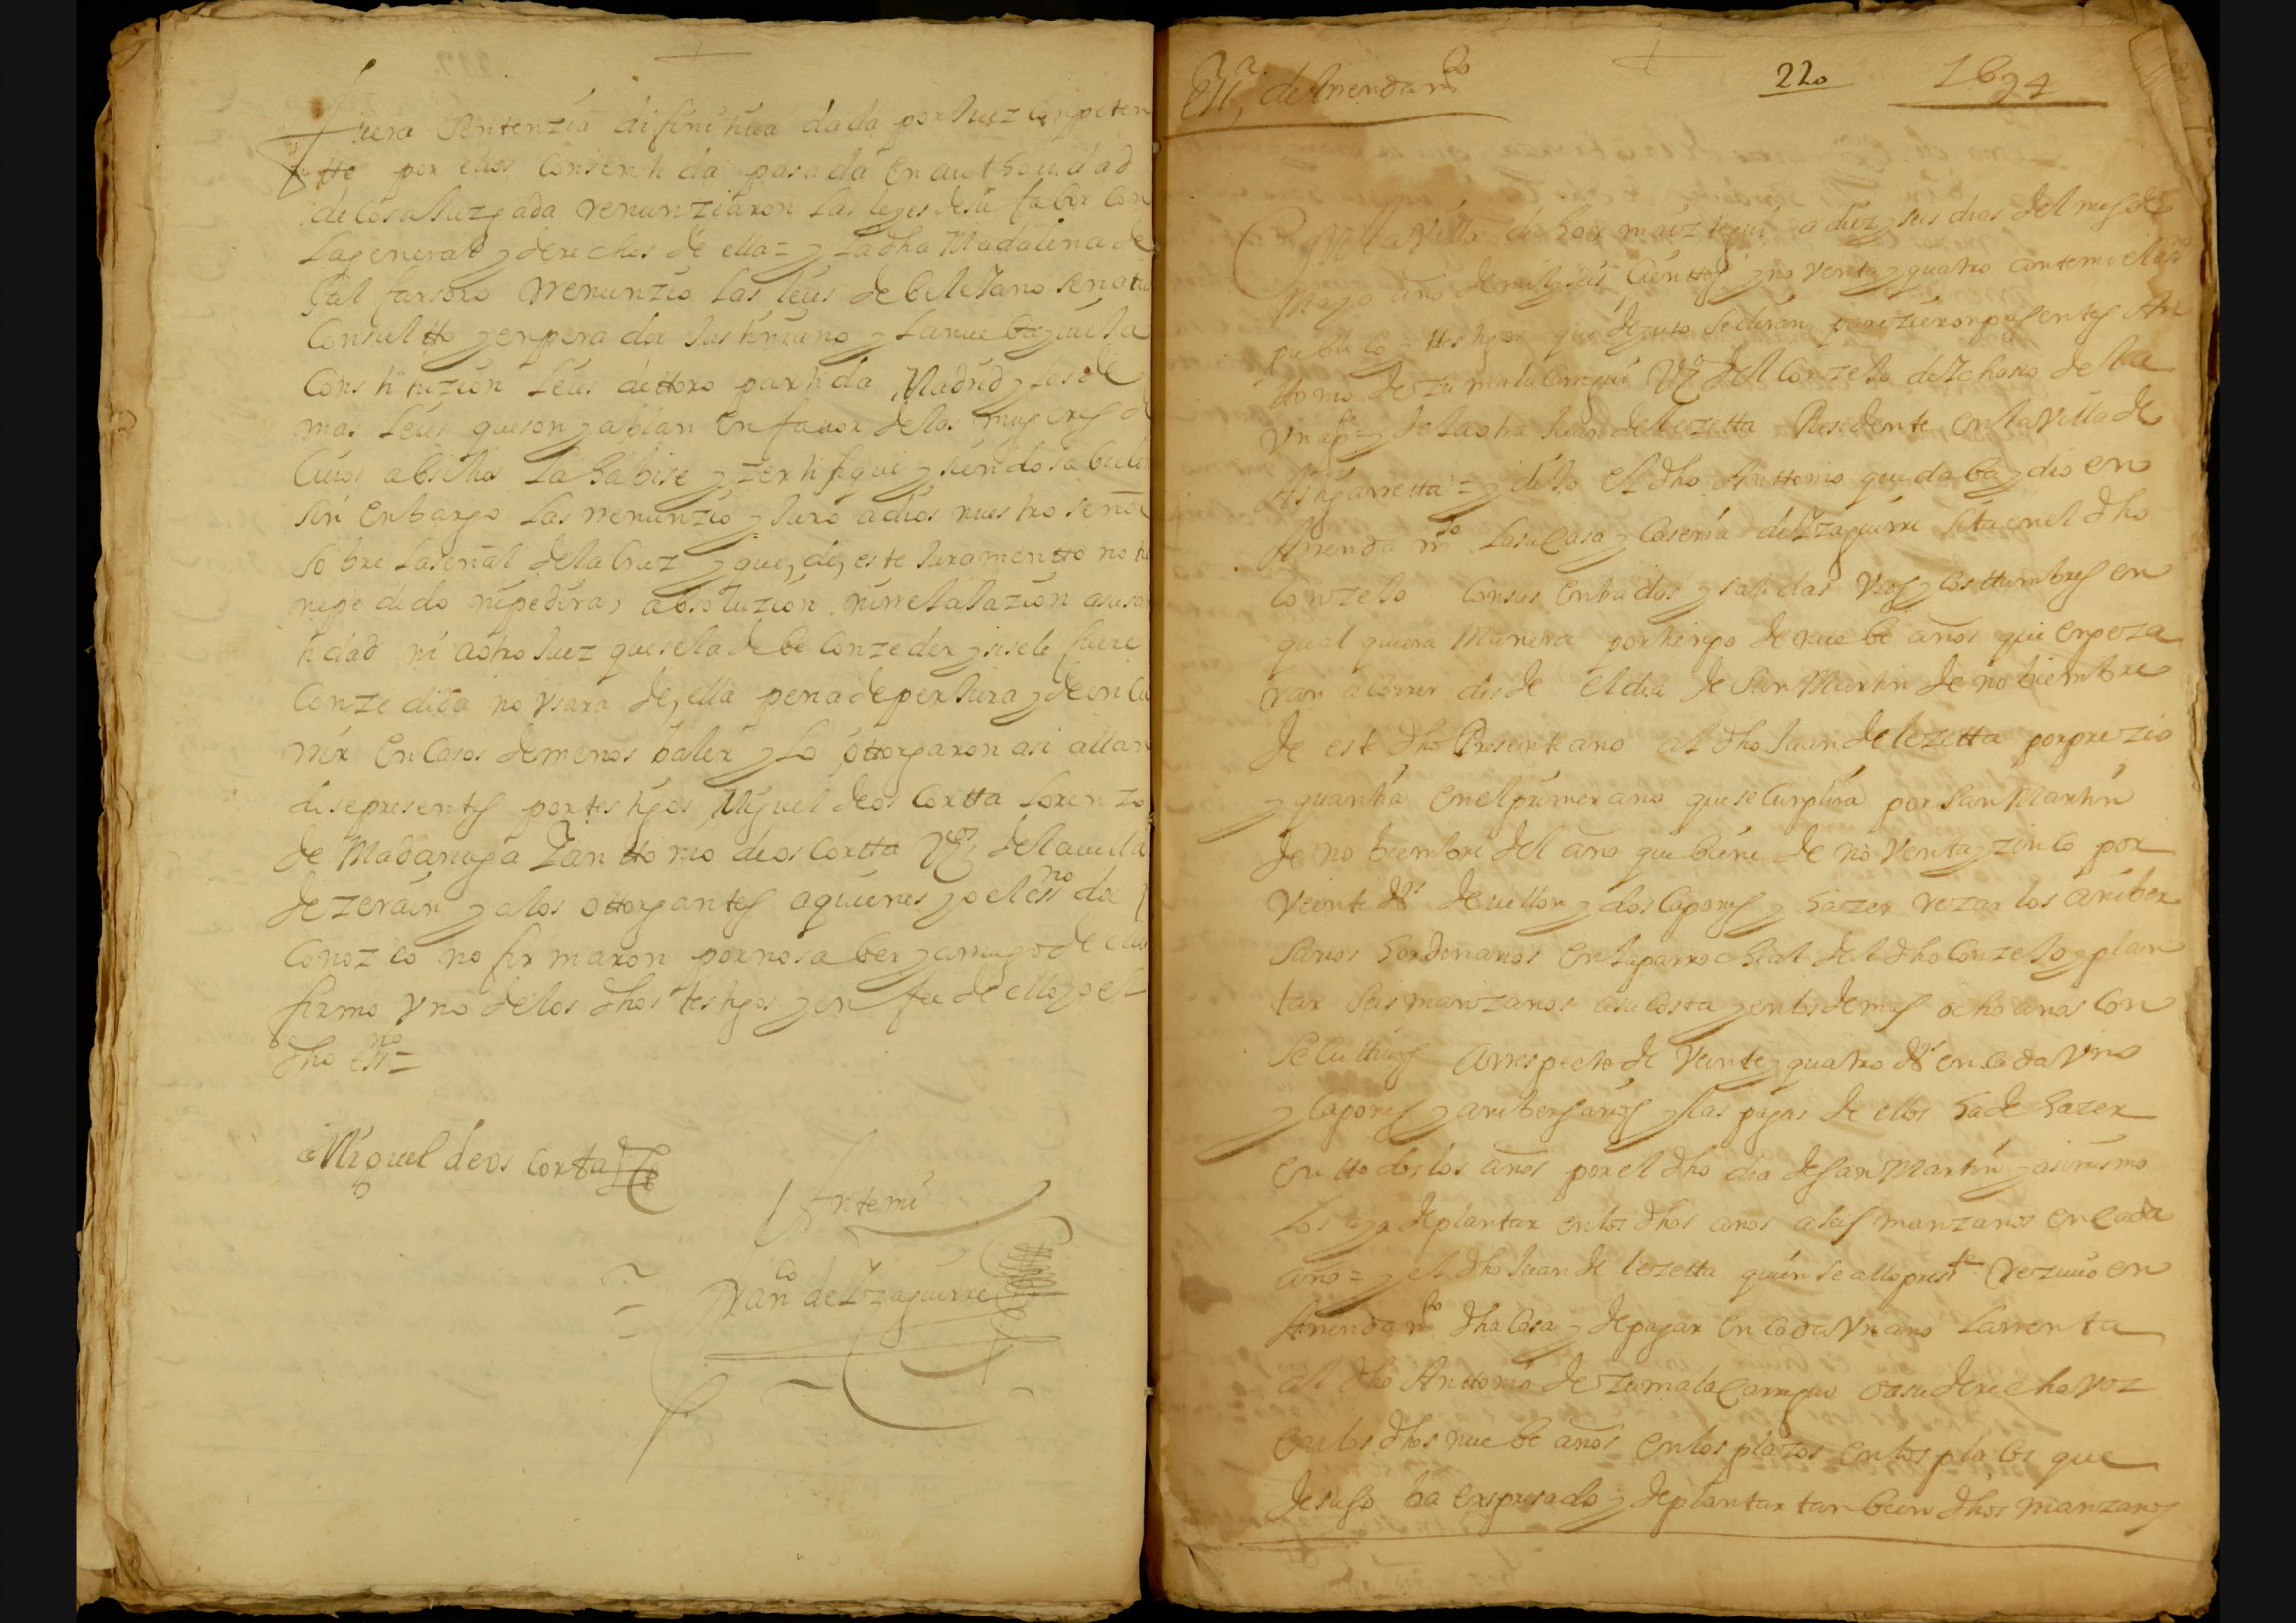 fuera Sentenzia difinitiua dada por Juez Conpeten
tte por ellos Consentida pasada en authoridad
de Cosa Juzgada renunziaron las leyes de su fabor con
la general y derechos de ella = y la dha Madalena de
renunzio las leies de beleJano senatus
Consultto y enperador Justiniano y la nueba y uieJa
Constituzion leies de ttoro partida Madrid y las de
mas leies que son y ablan en fauor de las mugeres de
Cuios abisos la Abise y zertifique y siendo sabidora
sin enbargo las renunzio y Juro a dios nuestro señor
sobre la señal de la Cruz y que de este Juramentto no ti
nege dido ni pedira absoluzion ni rrelaJazion a su san
tidad ni a otro Juez que se la debe Conzeder y si se le fuere
Conzedida no vsara de ella pena de perJura y de in cu
rrir en Casos de menos baler y lo ottorgaron asi allan
dose presentes por testigos Miguel de os Cortta Lorenzo
de Madariaga y anttonio de os cortta Vzos de la uilla
de zerain y a los ottorgantes a quienes yo el essno doi
Conozco no firmaron por no saber y a ruego de ellos
firmo vno de los dhos testigos y en fee de ello yo el
dho essno =
Miguel de os corta
Antemi
Franco de Yzaguirre
de Arrendamto
220
1694
En la Villa de hormaiztegui a diez y seis dias del mes de
Mayo año de mil y seis Cienttos y no venta y quatro ante mi el essno
publico y testigos que de yuso se diran parezieron presentes An
ttonio de zumalacarregui Vzo del Conzejo de Ychaso de la
vna pte = y de la otra Juan de lezetta Residente en la Villa de
Astigarretta = y dijo el dho Anttonio que daba y dio en
Arrendamto la su Casa y Caseria de Yzaguirre sita en el dho
Conzejo Con sus entradas y salidas vsos y Costtumbres en
qual quiera Manera por tienpo de nuebe años que enpeza
ran a correr desde el dia de San Martin de nobiembre
de este dho Presente año al dho Juan de lezetta por prezio
y quantia en el primer año que se Cunplira por San Martin
de no biembre del año que biene de no venta y zinco por
veinte ds de uellon y dos Capones y hazer rezar los aniber
sarios hordinarios en la parrochial del dho Conzejo y plan
tar seis manzanos a su Costa y en los demas ocho años con
seCuttiuos a rrespecto de veinte y quatro ds en cada vno
y Capones y anibersarios y las pagas de ellos ha de hazer
en ttodos los años por el dho dia de San Martin y asimismo
los aya de plantar en los dhos años a seis manzanos en Cada
año = y el dho Juan de lezetta quien se allo preste reziuio en
Arrendamto dha Casa y de pagar en cada vn año la rrenta
al dho Anttonio de zumalaCarregui o a su derecho voz
en los dhos nuebe años en los plazos en los plazos que
de suso ba expresado y de plantar tanbien dhos manzanos